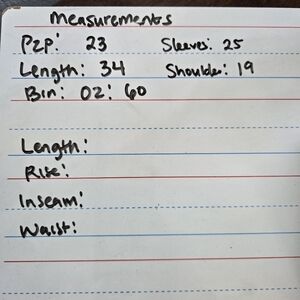 Measurements
P2P: 23 Sleeves: 25
Length: 34 Shoulder: 19
Bin: 02: 60
Length:
Rise:
Inseam:
Waist: